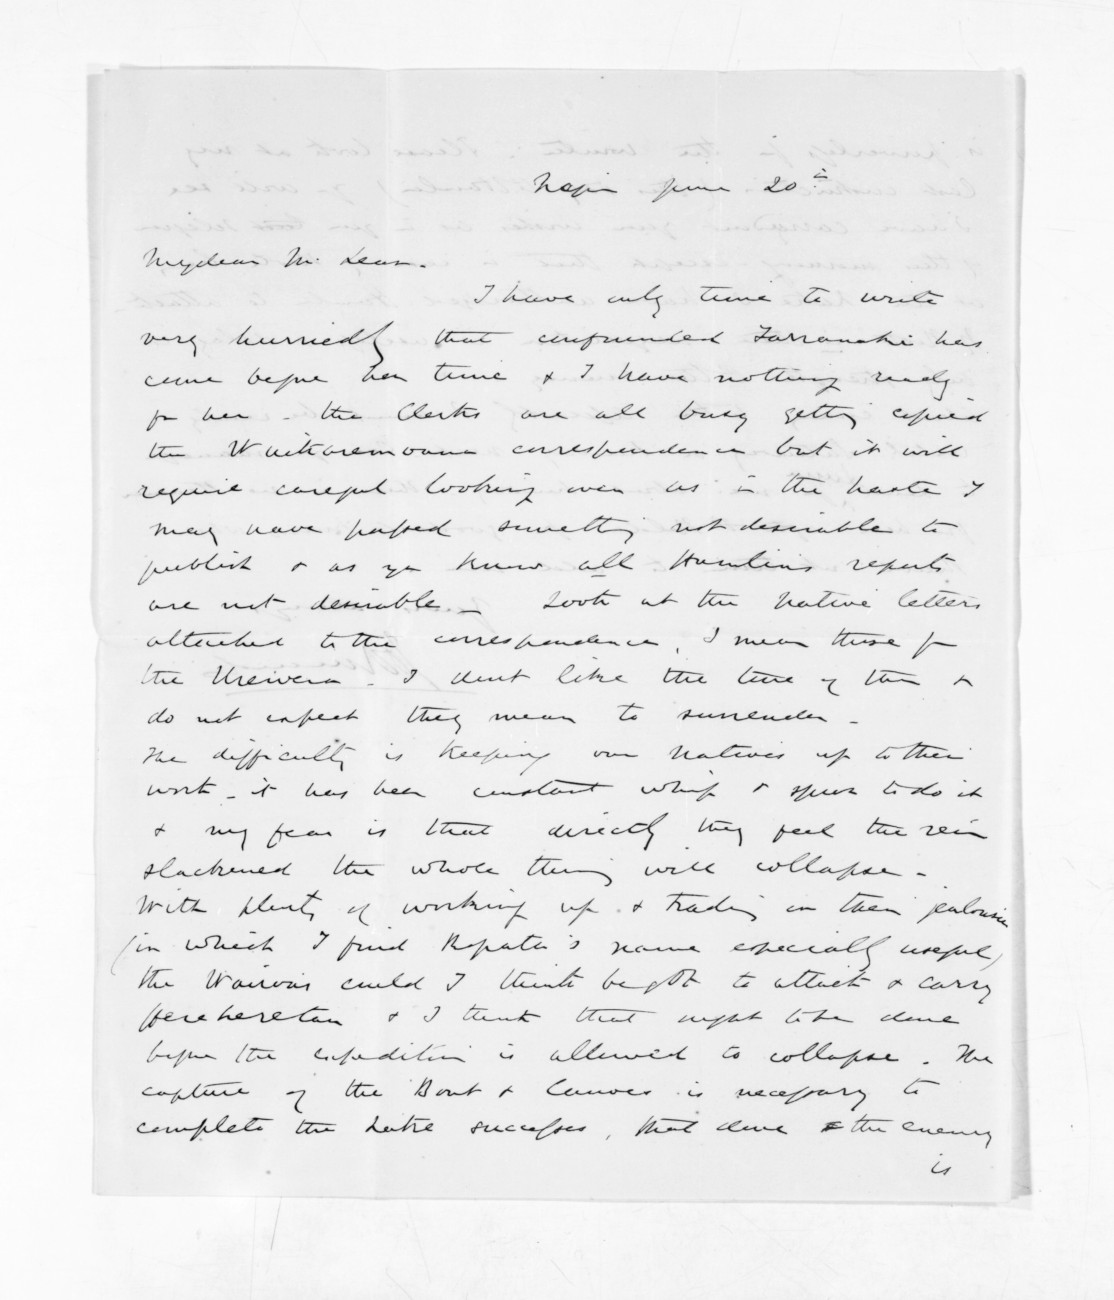 Napier June 20th
My dear McLean.
I have only time to write
very hurriedly that confounded Tarranaki has
come before her time & I have nothing ready
for her - the Clerks are all busy getting copied
the Waikaremoana correspondence but it will
require careful looking over as in the haste I
may have passed something not desirable to
publish & as you know all Hamlins reports
are not desirable - Look at the Native letters
attached to the correspondence, I mean those fr
the Urewera - I dont like the tone of them &
do not expect they mean to surrender -
The difficulty is keeping our Natives up to their
work - it has been constant whip & spur to do it
& my fear is that directly they feel the rein
slackened the whole thing will collapse -
With plenty of working up & trading on their jealousies
(in which I find Ropata's name especially useful)
the Wairoas could I think be got to attack & carry
Herehereton & I think that ought to be done
before the expedition is allowed to collapse. The
capture of the Boat & Canoes is necessary to
complete the Lake successes, that done the enemy
is